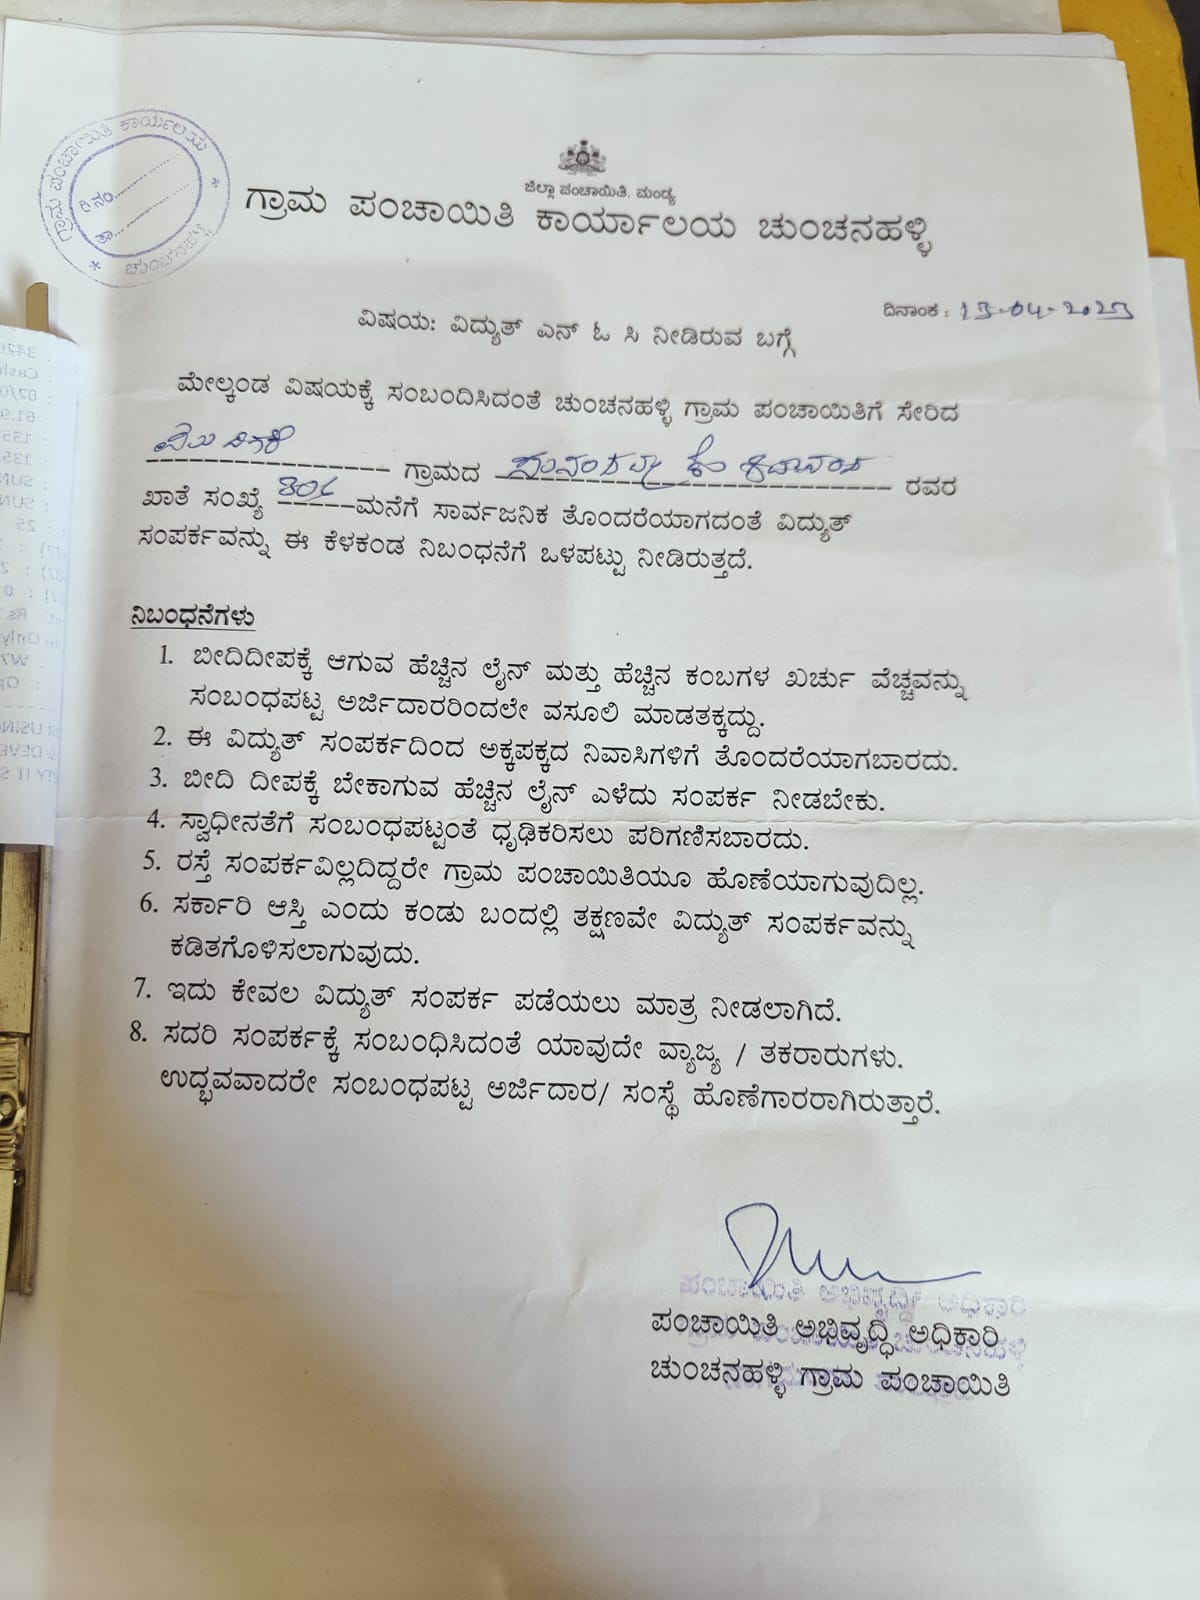 ಗ್ರಾಮ ಪಂಚಾಯಿತಿ ಕಾರ್ಯಾಲಯ
ದಿನಂ
ತಾ
* ಚುಂಚನಹಳ್ಳಿ *
ಜಿಲ್ಲಾ ಪಂಚಾಯಿತಿ, ಮಂಡ್ಯ
ಗ್ರಾಮ ಪಂಚಾಯಿತಿ ಕಾರ್ಯಾಲಯ ಚುಂಚನಹಳ್ಳಿ
ದಿನಾಂಕ :
ವಿಷಯ: ವಿದ್ಯುತ್ ಎನ್ ಓ ಸಿ ನೀಡಿರುವ ಬಗ್ಗೆ
ಮೇಲ್ಕಂಡ ವಿಷಯಕ್ಕೆ ಸಂಬಂದಿಸಿದಂತೆ ಚುಂಚನಹಳ್ಳಿ ಗ್ರಾಮ ಪಂಚಾಯಿತಿಗೆ ಸೇರಿದ
ಗ್ರಾಮದ ರವರ
ಖಾತೆ ಸಂಖ್ಯೆ ಮನೆಗೆ ಸಾರ್ವಜನಿಕ ತೊಂದರೆಯಾಗದಂತೆ ವಿದ್ಯುತ್
ಸಂಪರ್ಕವನ್ನು ಈ ಕೆಳಕಂಡ ನಿಬಂಧನೆಗೆ ಒಳಪಟ್ಟು ನೀಡಿರುತ್ತದೆ.
ನಿಬಂಧನೆಗಳು
1. ಬೀದಿದೀಪಕ್ಕೆ ಆಗುವ ಹೆಚ್ಚಿನ ಲೈನ್ ಮತ್ತು ಹೆಚ್ಚಿನ ಕಂಬಗಳ ಖರ್ಚು ವೆಚ್ಚವನ್ನು
ಸಂಬಂಧಪಟ್ಟ ಅರ್ಜಿದಾರರಿಂದಲೇ ವಸೂಲಿ ಮಾಡತಕ್ಕದ್ದು.
2. ಈ ವಿದ್ಯುತ್ ಸಂಪರ್ಕದಿಂದ ಅಕ್ಕಪಕ್ಕದ ನಿವಾಸಿಗಳಿಗೆ ತೊಂದರೆಯಾಗಬಾರದು.
3. ಬೀದಿ ದೀಪಕ್ಕೆ ಬೇಕಾಗುವ ಹೆಚ್ಚಿನ ಲೈನ್ ಎಳೆದು ಸಂಪರ್ಕ ನೀಡಬೇಕು.
4. ಸ್ವಾಧೀನತೆಗೆ ಸಂಬಂಧಪಟ್ಟಂತೆ ಧೃಢಿಕರಿಸಲು ಪರಿಗಣಿಸಬಾರದು.
5. ರಸ್ತೆ ಸಂಪರ್ಕವಿಲ್ಲದಿದ್ದರೇ ಗ್ರಾಮ ಪಂಚಾಯಿತಿಯೂ ಹೊಣೆಯಾಗುವುದಿಲ್ಲ.
6. ಸರ್ಕಾರಿ ಆಸ್ತಿ ಎಂದು ಕಂಡು ಬಂದಲ್ಲಿ ತಕ್ಷಣವೇ ವಿದ್ಯುತ್ ಸಂಪರ್ಕವನ್ನು
ಕಡಿತಗೊಳಿಸಲಾಗುವುದು.
7. ಇದು ಕೇವಲ ವಿದ್ಯುತ್ ಸಂಪರ್ಕ ಪಡೆಯಲು ಮಾತ್ರ ನೀಡಲಾಗಿದೆ.
8. ಸದರಿ ಸಂಪರ್ಕಕ್ಕೆ ಸಂಬಂಧಿಸಿದಂತೆ ಯಾವುದೇ ವ್ಯಾಜ್ಯ / ತಕರಾರುಗಳು.
ಉದ್ಭವವಾದರೇ ಸಂಬಂಧಪಟ್ಟ ಅರ್ಜಿದಾರ/ ಸಂಸ್ಥೆ ಹೊಣೆಗಾರರಾಗಿರುತ್ತಾರೆ.
ಪಂಚಾಯಿತಿ ಅಭಿವೃದ್ಧಿ ಅಧಿಕಾರಿ
ಪಂಚಾಯಿತಿ ಅಭಿವೃದ್ಧಿ ಅಧಿಕಾರಿ
ಚುಂಚನಹಳ್ಳಿ ಗ್ರಾಮ ಪಂಚಾಯಿತಿ